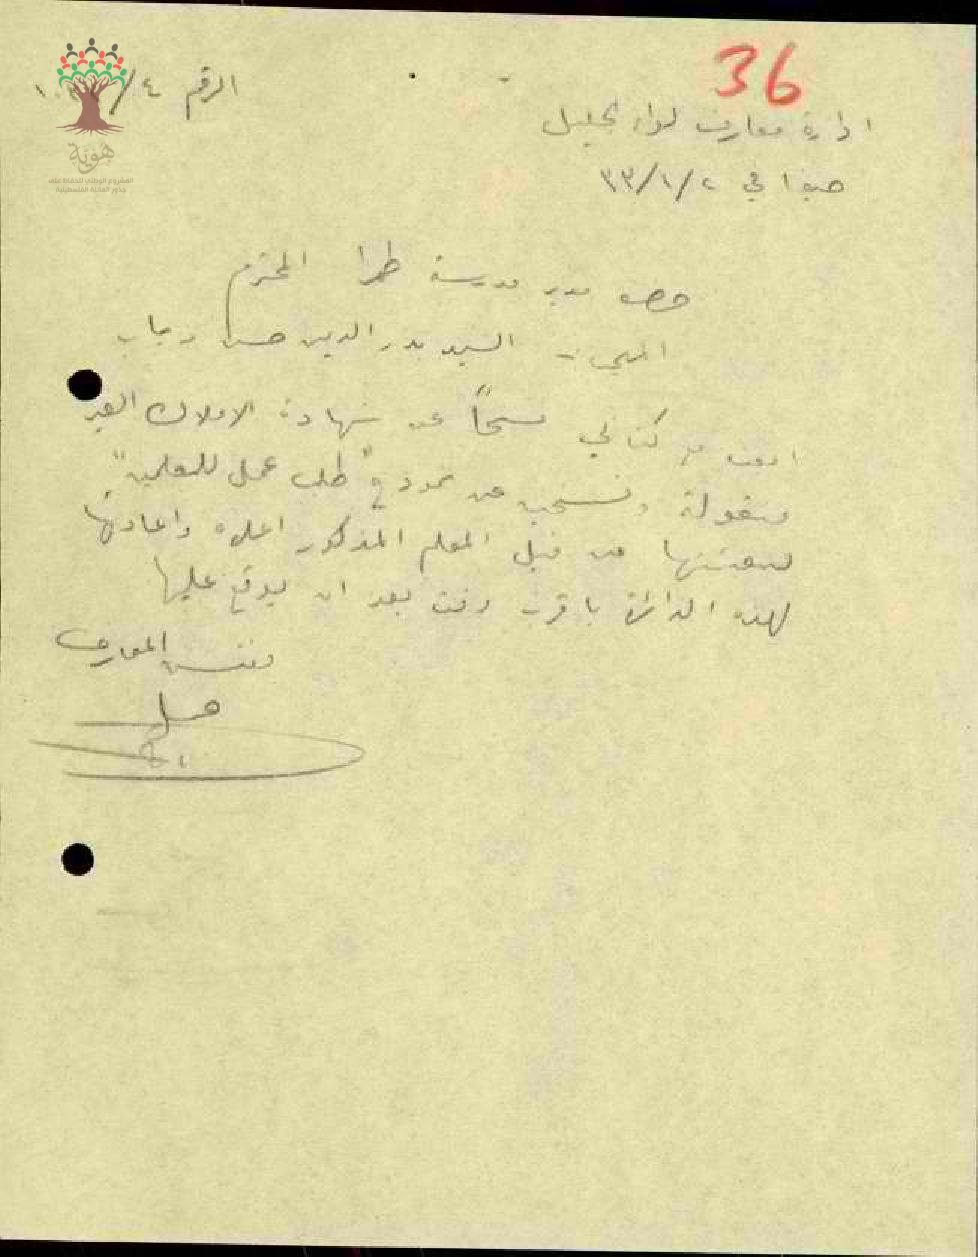 36
الرقم ٤/
هوية
المشروع الوطني للحفاظ على
جذور العائلة الفلسطينية
ادارة معارف لواء الجليل
حيفا في ٢/١/٣٣
مدير مدرسة طمرا المحترم
السيد بدر الدين حسن
كتابي نسخاً عن شهادة الاملاك الغير
منقولة ونسختين عن نموذج "طلب عمل للمعلمين"
لتعبئتها من قبل المعلم المذكور اعلاه واعادتها
لهذه الدائرة باقرب وقت بعد ان يوقع عليها
مفتش المعارف